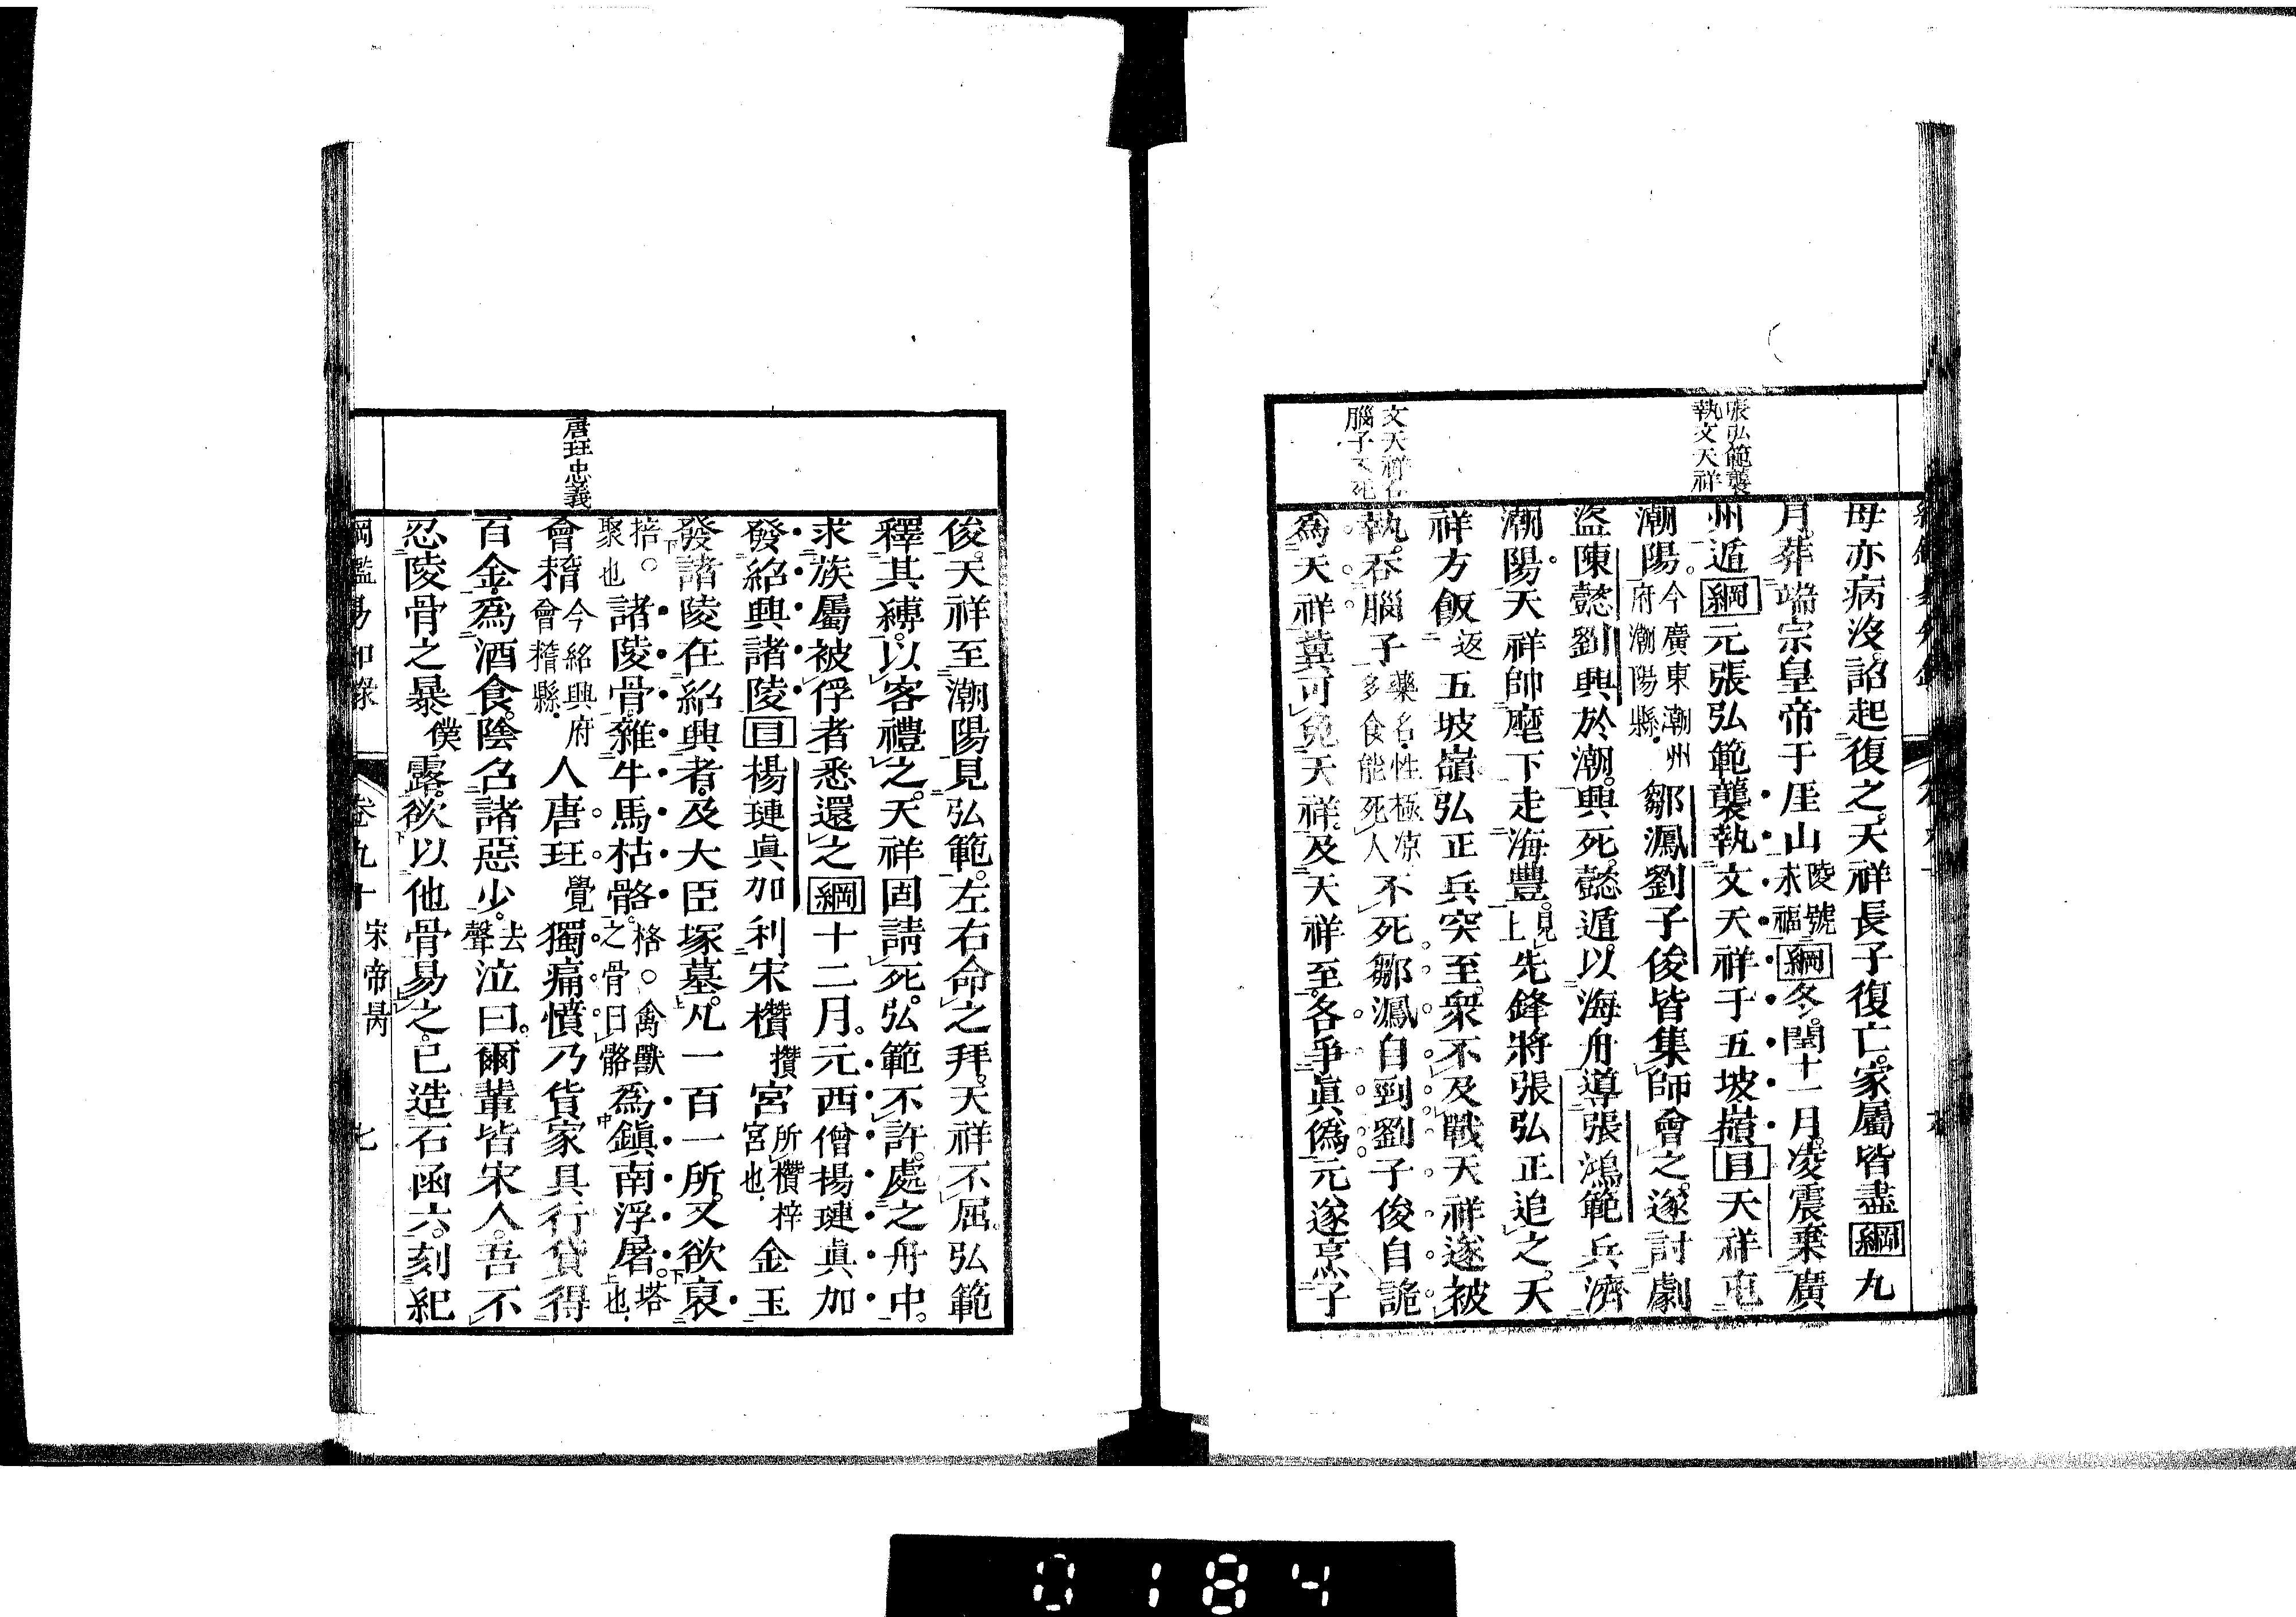 張弘範襲
執文天祥
母亦病沒。詔起復之。天祥長子復亡。家屬皆盡綱九
月。葬端宗皇帝于厓山陵號永福綱冬。閏十一月。凌震棄廣
州遁綱元張弘範襲執文天祥于五坡嶺目天祥屯
潮陽。今廣東潮州府潮陽縣。鄒㵯劉子俊皆集師會之。遂討劇
盜陳懿劉興於潮。興死。懿遁。以海舟導張鴻範兵濟
潮陽。天祥帥麾下走海豐。見上先鋒將張弘正追之。天
祥方飯返五坡嶺。弘正兵突至。衆不及戰。天祥遂被
執。吞腦子藥名。性極凉多食能死人不死。鄒㵯自剄。劉子俊自詭
爲天祥。冀可免天祥。及天祥至。各爭眞僞。元遂烹子
文天祥
腦子不死
俊。天祥至潮陽見弘範。左右命之拜。天祥不屈。弘範
釋其縛。以客禮之。天祥固請死。弘範不許。處之舟中。
求族屬被俘者悉還之綱十二月。元西僧楊璉眞加
發紹興諸陵目楊璉眞加利宋欑攢宮所欑梓宮也。金玉
發諸陵在紹興者。及大臣塚墓。凡一百一所。又欲裒
掊。○聚也諸陵骨。雜牛馬枯骼。格。○禽獸之骨曰骼爲鎭南浮屠。塔也。
會稽今紹興府會稽縣。人唐珏覺獨痛憤。乃貨家具行貸得
百金。爲酒食。陰召諸惡少。去聲泣曰。爾輩皆宋人。吾不
忍陵骨之暴僕露。欲以他骨易之。已造石函六。刻紀
唐珏忠義
綱鑑易知錄 卷九十 宋帝昺 七
0184